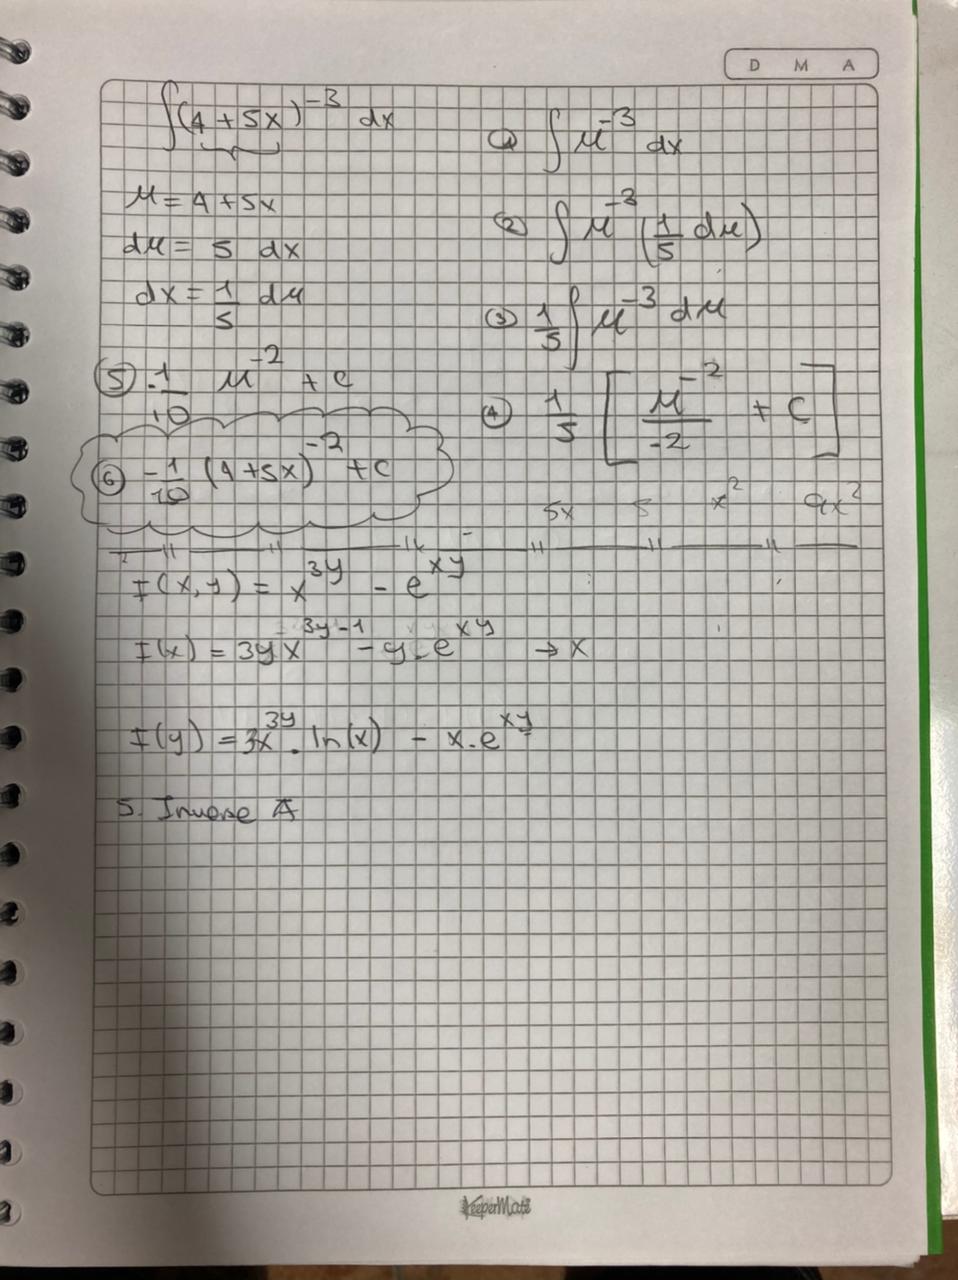 D M A
∫(4 + 5x)⁻³ dx
μ = 4 + 5x
du = 5 dx
dx = 1/5 du
① ∫ μ⁻³ dx
② ∫ μ⁻³ (1/5 du)
③ 1/5 ∫ μ⁻³ du
④ 1/5 [μ⁻²/-2 + C]
⑤ -1/10 μ⁻² + C
⑥ -1/10 (4 + 5x)⁻² + C
5x 5 x²
I(x,y) = x^3y - e^xy
I(x) = 3y x^3y-1 - y.e^xy → x
I(y) = 3x^3y . ln(x) - x.e^xy
5. Inverse A
KeeperMate